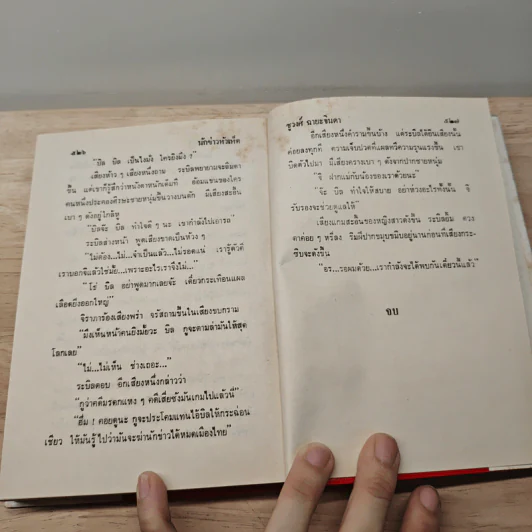 ๕๒๖
นักข่าวหัวเห็ด
"บิล บิล เป็นไงมั่ง ใครยิงมึง ?"
เสียงห้าว ๆ เสียงหนึ่งถาม ระบิลพยายามจะลืมตา
ขึ้น แต่เขาก็รู้สึกว่าหนังตาหนักเต็มที อ้อมแขนของใคร
คนหนึ่งประคองศีรษะชายหนุ่มขึ้นวางบนตัก มีเสียงสะอื้น
เบา ๆ ดังอยู่ใกล้หู
"บิลจ๊ะ บิล ทำใจดี ๆ นะ เขากำลังไปเอารถ"
ระบิลส่ายหน้า พูดเสียงขาดเป็นห้วง ๆ
"ไม่ต้อง...ไม่...จำเป็นแล้ว...ไม่รอดแน่ เรารู้ตัวดี
เราบอกแล้วใช่มั้ย...เพราะอะไรเราจึงไม่..."
"โธ่ บิล อย่าพูดมากเลยจ้ะ เดี๋ยวกระเทือนแผล
เลือดยิ่งออกใหญ่"
จิราภาร้องเสียงพร่า จรัสถามขึ้นในเสียงขบกราม
"มึงเห็นหน้าคนยิงมั้ยวะ บิล กูจะตามล่ามันให้สุด
โลกเลย"
"ไม่...ไม่เห็น ช่างเถอะ..."
ระบิลตอบ อีกเสียงหนึ่งกล่าวว่า
"กูว่าคดีมรดกแหง ๆ คดีเสี่ยซังมันเกมไปแล้วนี่"
"ฮึ่ม ! คอยดูนะ กูจะประโคมแทนไอ้บิลให้กระฉ่อน
เชียว ให้มันรู้ไปว่ามันจะฆ่านักข่าวได้หมดเมืองไทย"
ชูวงศ์ ฉายะจินดา
๕๒๗
อีกเสียงหนึ่งคำรามขึ้นบ้าง แต่ระบิลได้ยินเสียงนั้น
ค่อยลงทุกที ความเจ็บปวดที่แผลทวีความรุนแรงขึ้น เขา
บิดตัวไปมา มีเสียงครางเบา ๆ ดังจากปากชายหนุ่ม
"จิ ฝากแม่กับน้องของเราด้วยนะ"
"จ้ะ บิล ทำใจให้สบาย อย่าห่วงอะไรทั้งนั้น จิ
รับรองจะช่วยดูแลให้"
เสียงแกมสะอื้นของหญิงสาวดังขึ้น ระบิลยิ้ม ดวง
ตาค่อย ๆ หรี่ลง ริมฝีปากขมุบขมิบอยู่นานก่อนที่เสียงกระ-
ซิบจะดังขึ้น
"อร...รอผมด้วย...เรากำลังจะได้พบกันเดี๋ยวนี้แล้ว"
จบ